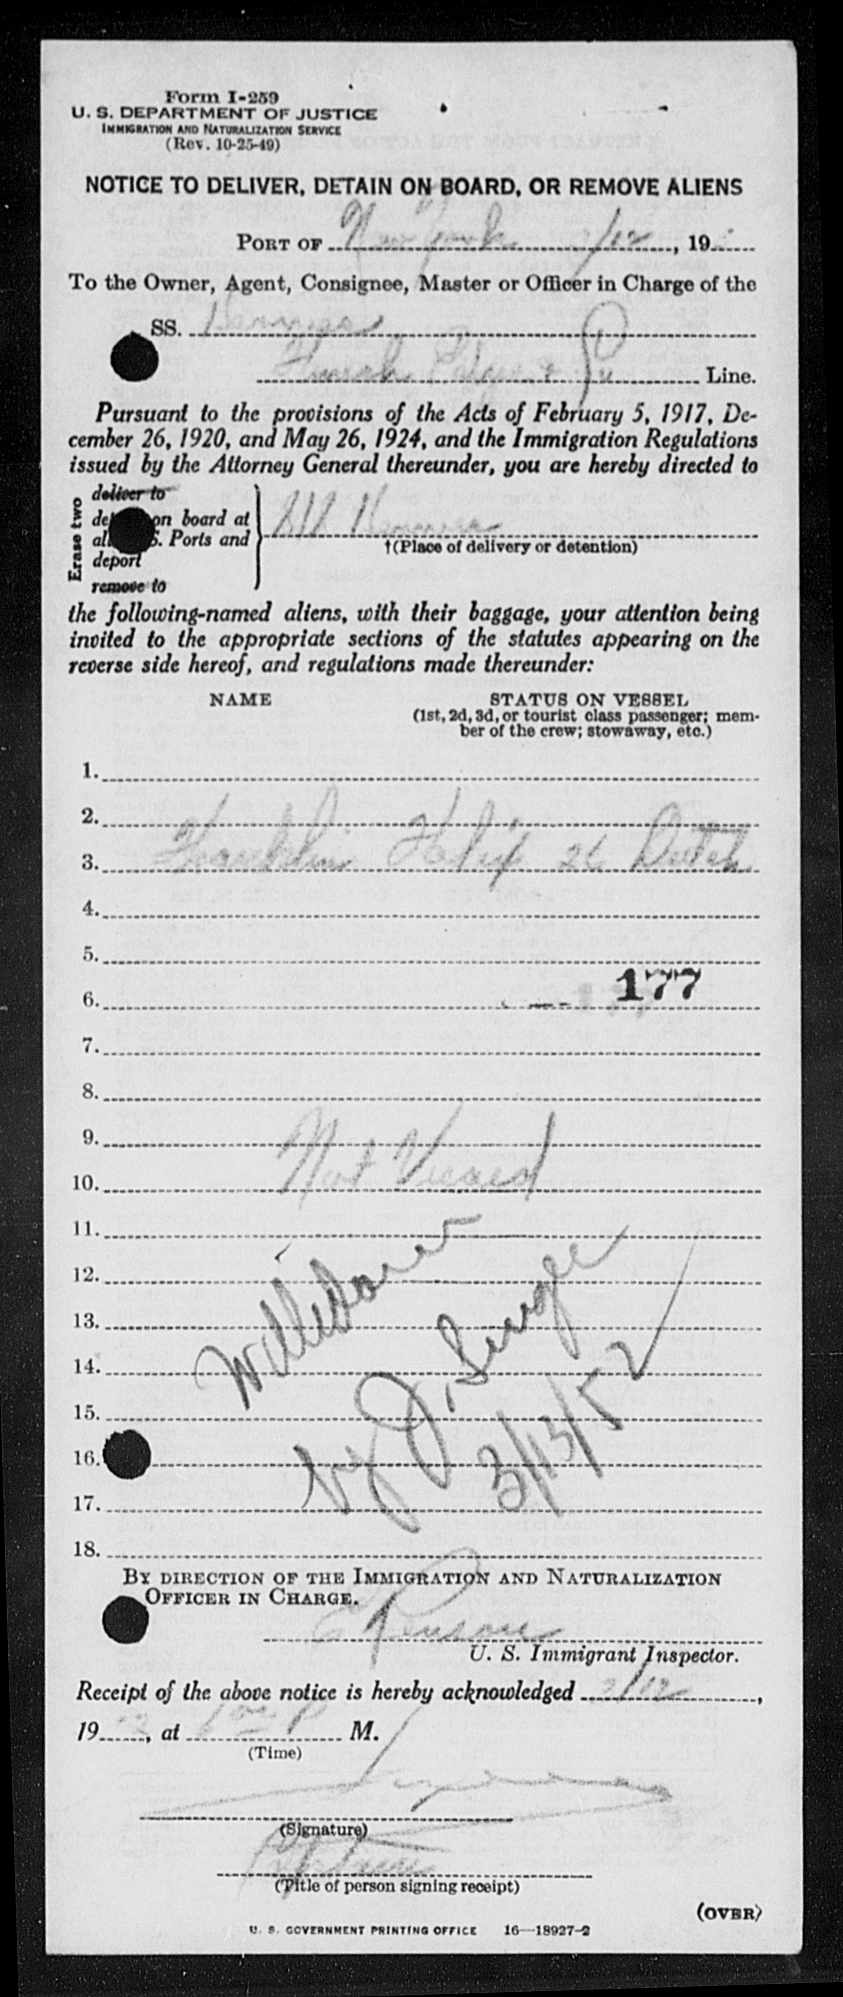 Form I-259
U. S. DEPARTMENT OF JUSTICE
IMMIGRATION AND NATURALIZATION SERVICE
(Rev. 10-25-49)
NOTICE TO DELIVER, DETAIN ON BOARD, OR REMOVE ALIENS
PORT OF New York /12, 19
To the Owner, Agent, Consignee, Master or Officer in Charge of the
SS.
Line.
Pursuant to the provisions of the Acts of February 5, 1917, De-
cember 26, 1920, and May 26, 1924, and the Immigration Regulations
issued by the Attorney General thereunder, you are hereby directed to
Erase two
deliver to
on board at
S. Ports and
deport
remove to
†(Place of delivery or detention)
the following-named aliens, with their baggage, your attention being
invited to the appropriate sections of the statutes appearing on the
reverse side hereof, and regulations made thereunder:
NAME STATUS ON VESSEL
(1st, 2d, 3d, or tourist class passenger; mem-
ber of the crew; stowaway, etc.)
1.
2.
3. Franklin Felix 26 Dutch
4.
5.
6. 177
7.
8.
9.
10. Not Visaed
11.
12.
13.
14.
15. by J.
16. 3/13/52
17.
18.
BY DIRECTION OF THE IMMIGRATION AND NATURALIZATION
OFFICER IN CHARGE.
U. S. Immigrant Inspector.
Receipt of the above notice is hereby acknowledged /12,
19 , at M.
(Time)
(Signature)
(Title of person signing receipt)
(OVER)
U. S. GOVERNMENT PRINTING OFFICE 16—18927-2